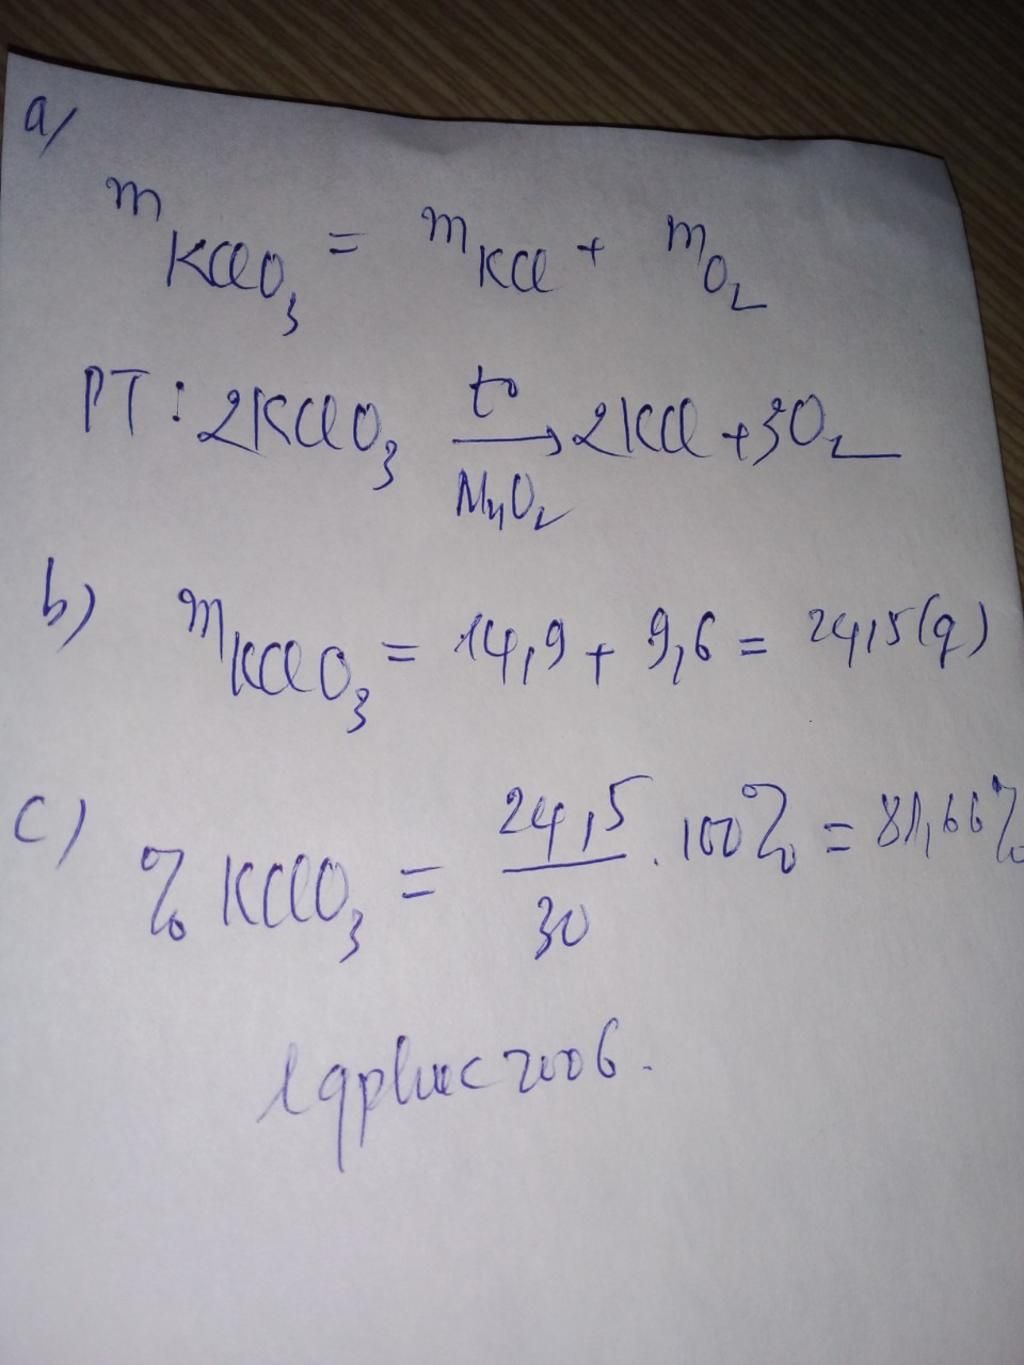 a/
m KClO3 = m KCl + m O2
PT: 2KClO3 t° → MnO2 2KCl + 3O2
b) m KClO3 = 14,9 + 9,6 = 24,5(g)
c) % KClO3 = 24,5/30 . 100% = 81,66%
lqphuc2006.